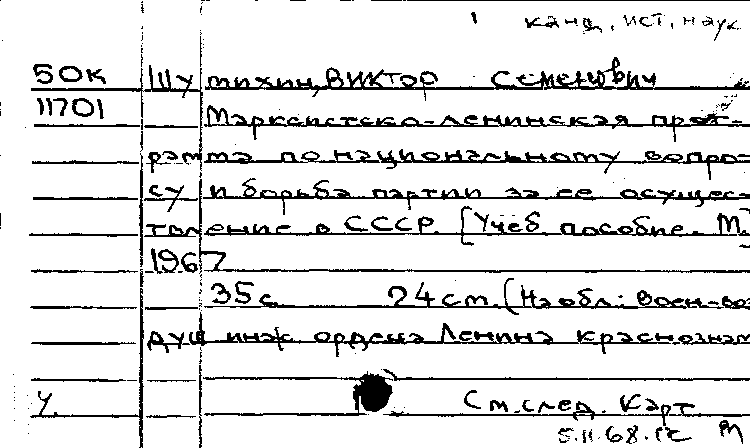 канд. ист. наук
50к Шутихин, Виктор Семенович
11701 Марксистско-ленинская прог-
рамма по национальному вопро-
су и борьба партии за ее осущес-
твление в СССР. [Учеб. пособие. М.]
1967
35 с. 24 см. (На обл.: Воен-воз-
душ инж ордена Ленина краснознам
У. См. след. карт
5.11.68.